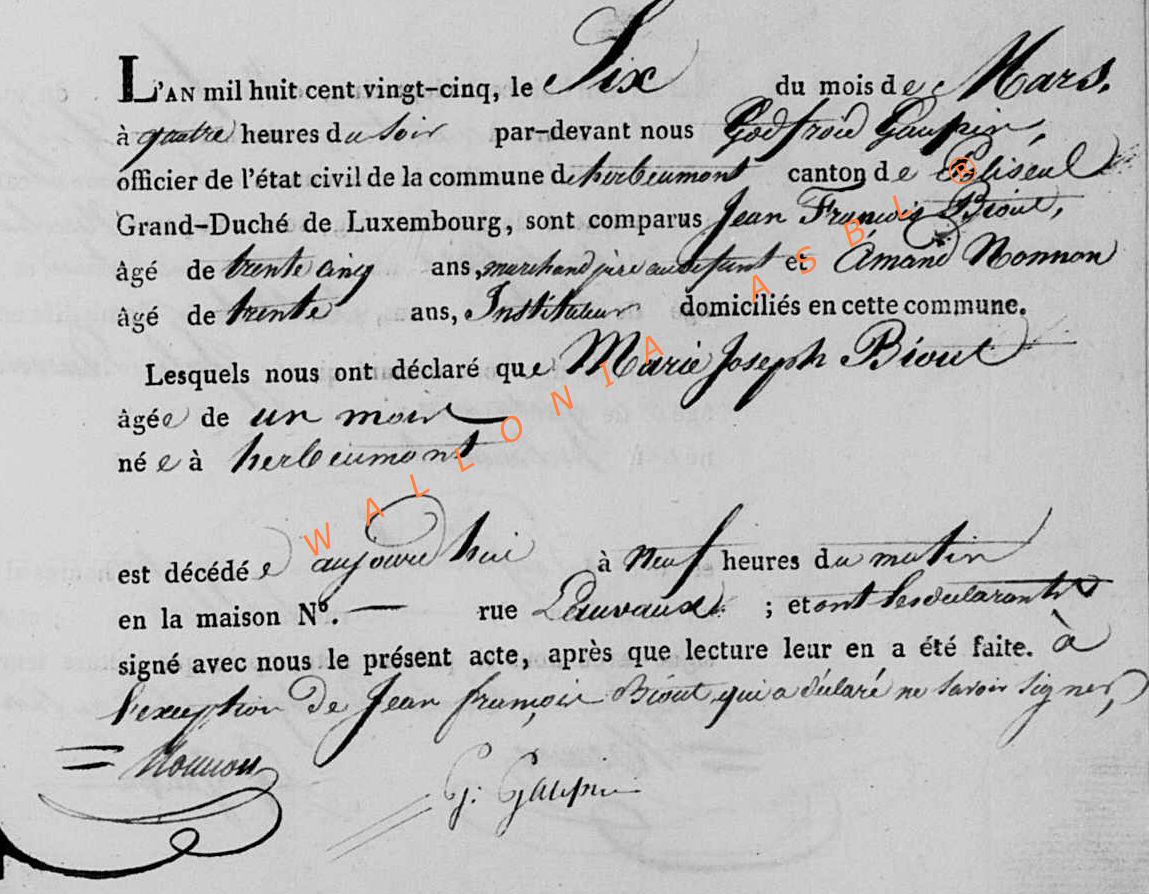 L'AN mil huit cent vingt-cinq, le Six du mois de Mars.
à quatre heures du soir par-devant nous Godfroid Gaupin,
officier de l'état civil de la commune d'herbeumont canton de Paliseul
Grand-Duché de Luxembourg, sont comparus Jean François Biout,
âgé de trente cinq ans, marchand père au défunt et Amand Nonnon
âgé de trente ans, Instituteur domiciliés en cette commune.
Lesquels nous ont déclaré que Marie Joseph Biout
âgée de un mois
née à herbeumont
est décédée aujourd'hui à neuf heures du matin
en la maison N.º — rue ; et ont les déclarants
signé avec nous le présent acte, après que lecture leur en a été faite. à
l'exception de Jean françois Biout qui a déclaré ne savoir signer,
Nonnon
G: Gaupin
WALLONIA ASBL ®